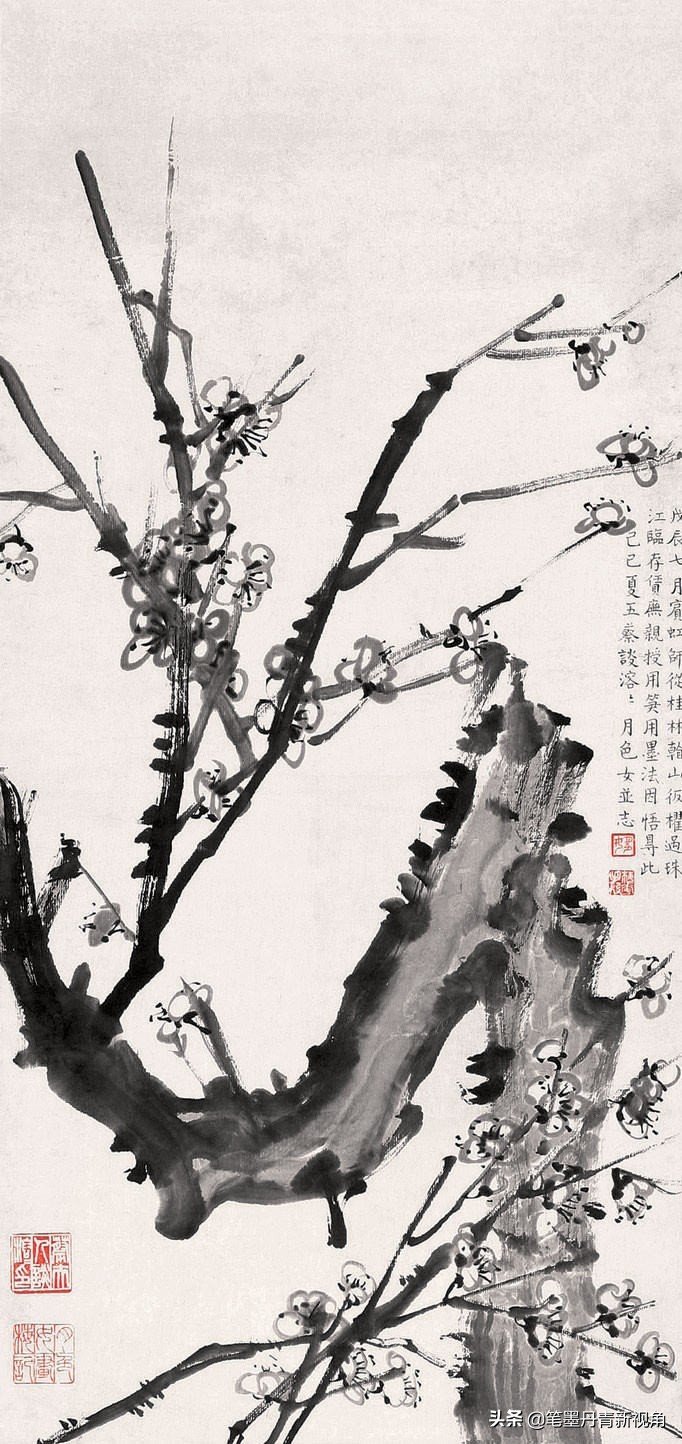 戊辰七月賓虹師從桂林韓山仮櫂過珠
江臨存賃廡親授用筆用墨法因悟尋此
己巳夏五蔡談溶溶月色女並志
头条 @笔墨丹青新视角